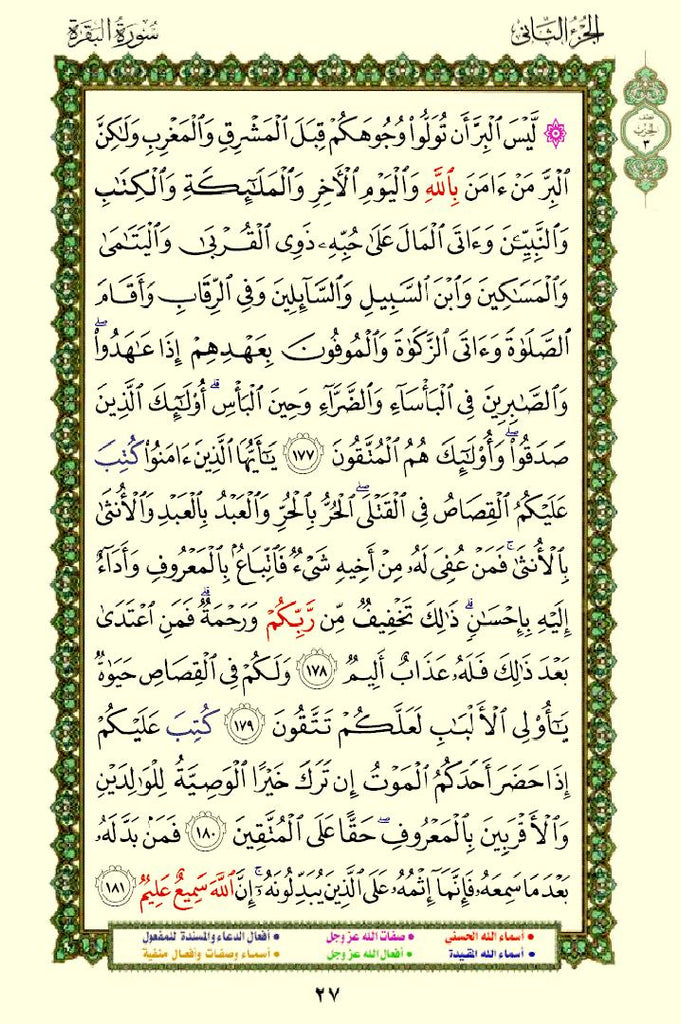 الجزء الثاني
سورة البقرة
نصف
الحزب
٣
۞ لَّيْسَ ٱلْبِرَّ أَن تُوَلُّوا۟ وُجُوهَكُمْ قِبَلَ ٱلْمَشْرِقِ وَٱلْمَغْرِبِ وَلَٰكِنَّ
ٱلْبِرَّ مَنْ ءَامَنَ بِٱللَّهِ وَٱلْيَوْمِ ٱلْءَاخِرِ وَٱلْمَلَٰٓئِكَةِ وَٱلْكِتَٰبِ
وَٱلنَّبِيِّۦنَ وَءَاتَى ٱلْمَالَ عَلَىٰ حُبِّهِۦ ذَوِى ٱلْقُرْبَىٰ وَٱلْيَتَٰمَىٰ
وَٱلْمَسَٰكِينَ وَٱبْنَ ٱلسَّبِيلِ وَٱلسَّآئِلِينَ وَفِى ٱلرِّقَابِ وَأَقَامَ
ٱلصَّلَوٰةَ وَءَاتَى ٱلزَّكَوٰةَ وَٱلْمُوفُونَ بِعَهْدِهِمْ إِذَا عَٰهَدُوا۟ ۖ
وَٱلصَّٰبِرِينَ فِى ٱلْبَأْسَآءِ وَٱلضَّرَّآءِ وَحِينَ ٱلْبَأْسِ ۗ أُو۟لَٰٓئِكَ ٱلَّذِينَ
صَدَقُوا۟ ۖ وَأُو۟لَٰٓئِكَ هُمُ ٱلْمُتَّقُونَ ١٧٧ يَٰٓأَيُّهَا ٱلَّذِينَ ءَامَنُوا۟ كُتِبَ
عَلَيْكُمُ ٱلْقِصَاصُ فِى ٱلْقَتْلَى ۖ ٱلْحُرُّ بِٱلْحُرِّ وَٱلْعَبْدُ بِٱلْعَبْدِ وَٱلْأُنثَىٰ
بِٱلْأُنثَىٰ ۚ فَمَنْ عُفِىَ لَهُۥ مِنْ أَخِيهِ شَىْءٌ فَٱتِّبَاعٌۢ بِٱلْمَعْرُوفِ وَأَدَآءٌ
إِلَيْهِ بِإِحْسَٰنٍ ۗ ذَٰلِكَ تَخْفِيفٌ مِّن رَّبِّكُمْ وَرَحْمَةٌ ۗ فَمَنِ ٱعْتَدَىٰ
بَعْدَ ذَٰلِكَ فَلَهُۥ عَذَابٌ أَلِيمٌ ١٧٨ وَلَكُمْ فِى ٱلْقِصَاصِ حَيَوٰةٌ
يَٰٓأُو۟لِى ٱلْأَلْبَٰبِ لَعَلَّكُمْ تَتَّقُونَ ١٧٩ كُتِبَ عَلَيْكُمْ
إِذَا حَضَرَ أَحَدَكُمُ ٱلْمَوْتُ إِن تَرَكَ خَيْرًا ٱلْوَصِيَّةُ لِلْوَٰلِدَيْنِ
وَٱلْأَقْرَبِينَ بِٱلْمَعْرُوفِ ۖ حَقًّا عَلَى ٱلْمُتَّقِينَ ١٨٠ فَمَنۢ بَدَّلَهُۥ
بَعْدَ مَا سَمِعَهُۥ فَإِنَّمَآ إِثْمُهُۥ عَلَى ٱلَّذِينَ يُبَدِّلُونَهُۥٓ ۚ إِنَّ ٱللَّهَ سَمِيعٌ عَلِيمٌ ١٨١
• أسماء الله الحسنى • صفات الله عز وجل • أفعال الدعاء والمسندة للمفعول
• أسماء الله المقيدة • أفعال الله عز وجل • أسماء وصفات وأفعال منفية
٢٧